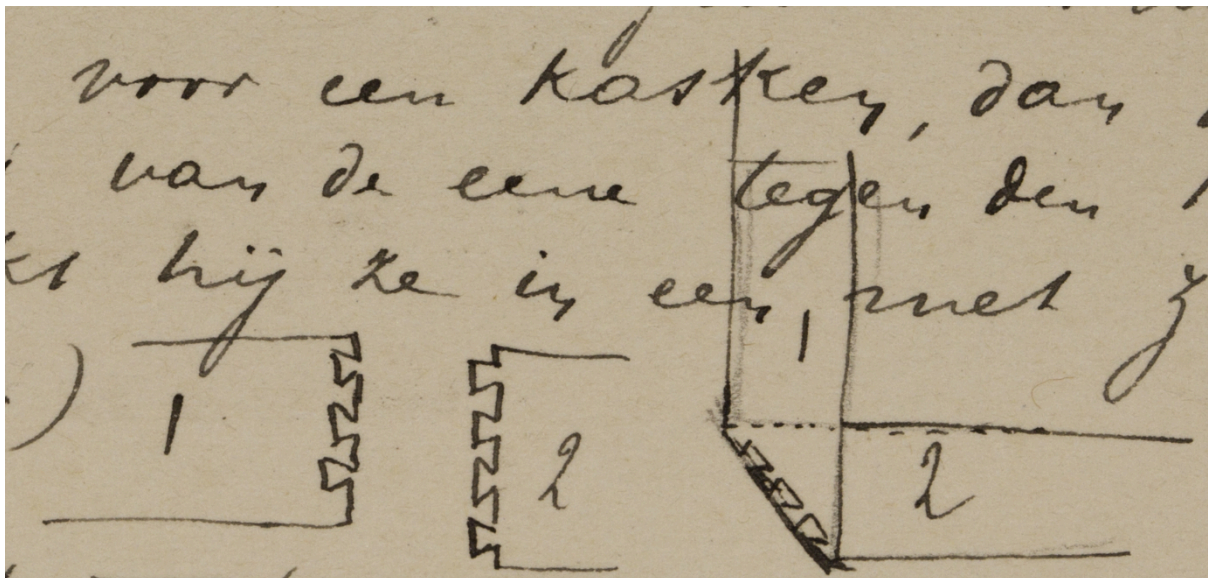 voor een kasken, dan
van de eene tegen den
hij ze in een, met
1
2
1
2